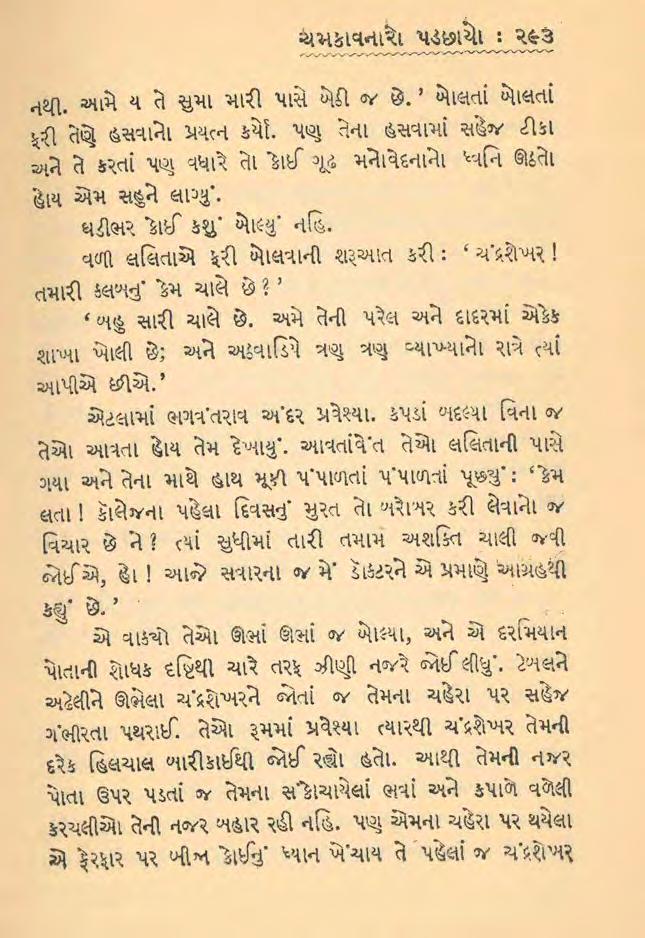 ચમકાવનારો પડછાયો : ૨૯૩
નથી. આમે ય તે સુમા મારી પાસે બેઠી જ છે.’ બોલતાં બોલતાં
ફરી તેણે હસવાનો પ્રયત્ન કર્યો. પણ તેના હસવામાં સહેજ ટીકા
અને તે કરતાં પણ વધારે તો કોઈ ગૂઢ મનોવેદનાનો ધ્વનિ ઊઠતો
હોય એમ સહુને લાગ્યું.
ઘડીભર કોઈ કશું બોલ્યું નહિ.
વળી લલિતાએ ફરી બોલવાની શરૂઆત કરી : ‘ ચંદ્રશેખર !
તમારી ક્લબનું કેમ ચાલે છે ? ’
‘ બહુ સારી ચાલે છે. અમે તેની પરેલ અને દાદરમાં એકેક
શાખા ખોલી છે; અને અઠવાડિયે ત્રણ ત્રણ વ્યાખ્યાનો રાત્રે ત્યાં
આપીએ છીએ.’
એટલામાં ભગવંતરાવ અંદર પ્રવેશ્યા. કપડાં બદલ્યા વિના જ
તેઓ આવતા હોય તેમ દેખાયું. આવતાંવેંત તેઓ લલિતાની પાસે
ગયા અને તેના માથે હાથ મૂકી પંપાળતાં પંપાળતાં પૂછ્યું : ‘ કેમ
લતા ! કૉલેજના પહેલા દિવસનું મુરત તો બરોબર કરી લેવાનો જ
વિચાર છે ને ? ત્યાં સુધીમાં તારી તમામ અશક્તિ ચાલી જવી
જોઈએ, હો ! આજે સવારના જ મેં ડૉક્ટરને એ પ્રમાણે આગ્રહથી
કહ્યું છે. ’
એ વાક્યો તેઓ ઊભાં ઊભાં જ બોલ્યા, અને એ દરમિયાન
પોતાની શોધક દૃષ્ટિથી ચારે તરફ ઝીણી નજરે જોઈ લીધું. ટેબલને
અઢેલીને ઊભેલા ચંદ્રશેખરને જોતાં જ તેમના ચહેરા પર સહેજ
ગંભીરતા પથરાઈ. તેઓ રૂમમાં પ્રવેશ્યા ત્યારથી ચંદ્રશેખર તેમની
દરેક હિલચાલ બારીકાઈથી જોઈ રહ્યો હતો. આથી તેમની નજર
પોતા ઉપર પડતાં જ તેમના સંકોચાયેલાં ભવાં અને કપાળે વળેલી
કરચલીઓ તેની નજર બહાર રહી નહિ. પણ એમના ચહેરા પર થયેલા
એ ફેરફાર પર બીજા કોઈનું ધ્યાન ખેંચાય તે પહેલાં જ ચંદ્રશેખર